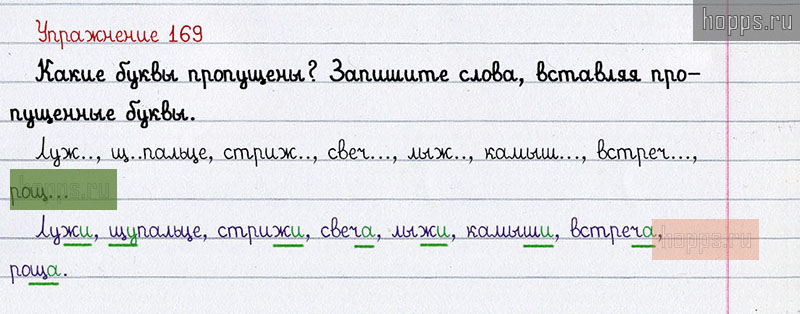 hopps.ru
Упражнение 169
Какие буквы пропущены? Запишите слова, вставляя про-
пущенные буквы.
Луж.., щ..пальце, стриж.., свеч..., лыж.., камыш..., встреч...,
рощ... hopps.ru
Лужи, щупальце, стрижи, свеча, лыжи, камыши, встреча, hopps.ru
роща.